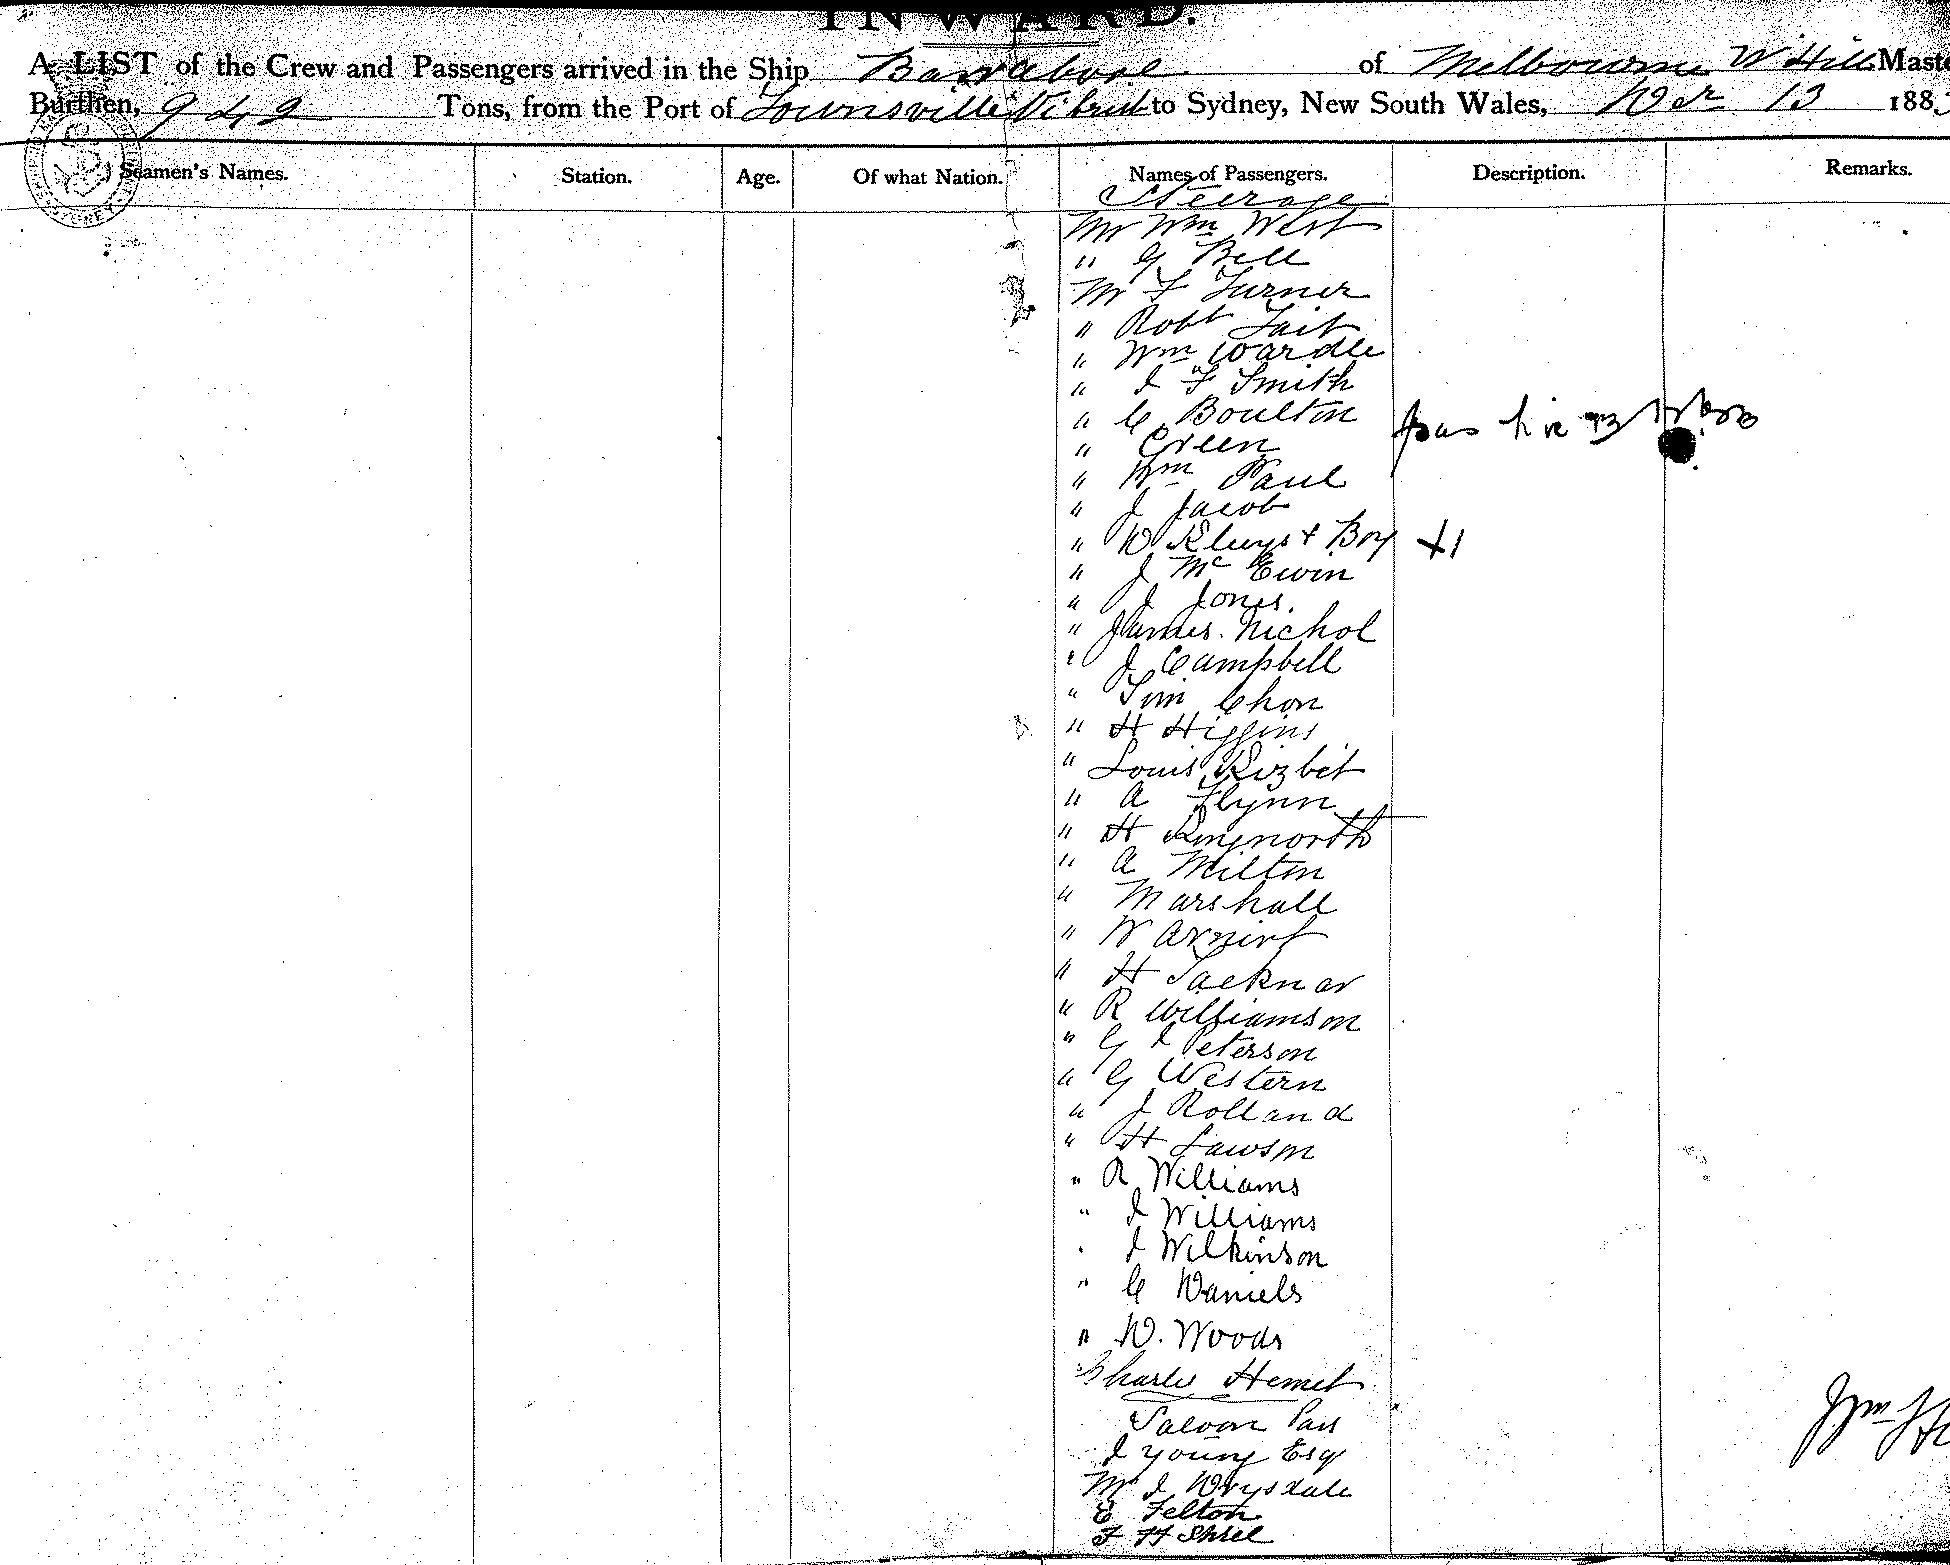 INWARD.
A LIST of the Crew and Passengers arrived in the Ship Barrabool of Melbourne W Hill Maste
Burthen, 949 Tons, from the Port of Townsville to Sydney, New South Wales, Dec 13 188
Seamen's Names. Station. Age. Of what Nation. Names of Passengers. Description. Remarks.
Steerage
Mr Wm West
" G Bell
Mr F Turner
" Robt Tait
" Wm Wardle
" J F Smith
" C Boulton
" Green
" Wm Paul
" J Jacob
" D & Boy +1
" J Mc Ewin
" J Jones.
" James Nichol
" J Campbell
" Tom Chon
" H Higgins
" Louis
" A Flynn
" H
" A Milton
" Marshall
" W
" H
" R Williamson
" G J Peterson
" G Western
" J Rolland
" H Lawson
" R Williams
" J Williams
" J Wilkinson
" C Daniels
" D. Woods
Charle Hemet
Saloon Pass
J Young Esq
J Drysdale
E Felton
F H
Wm H